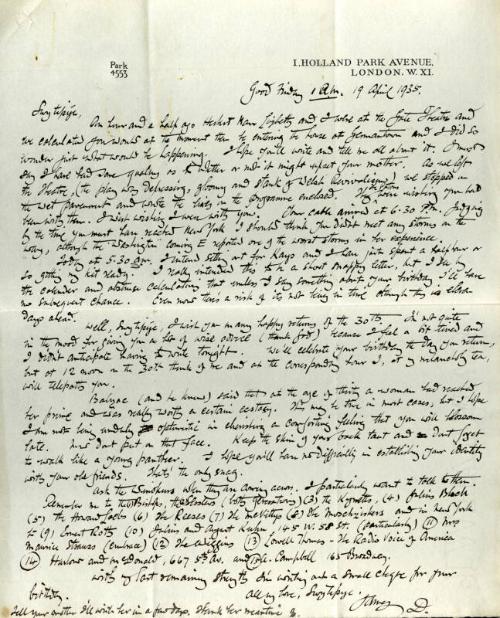 Park
4553
1, HOLLAND PARK AVENUE,
LONDON. W. XI.
Good Friday 1 a.m. 19 April 1935.
An hour and a half ago Herbert and I were at the Gate Theatre and
we calculated you would at the moment then be entering the house at Germantown and I did so
wonder just what would be happening. I hope you'll write and tell me all about it. I must
say I have had some qualms as to whether or not it might upset your mother. As we left
the theatre, (the play was depressing, gloomy and Welsh) we stepped in
the wet pavement and wrote the lines in the programme enclosed. They were wishing you had
been with them. I wish wishing I were with you. Your cable arrived at 6-30 PM. Judging
by the time you must have reached New York I should think you didn't meet any storms on the
way, although the Washington coming E reported one of the worst storms in her experience.
Today at 5-30 I intend setting out for and have just spent a half hour or
so getting my kit ready. I really intended this to be a short snappy letter, but I see by
the calendar and abstruse calculating that unless I say something about your birthday I'll have
no subsequent chance. Even now there's a risk of its not being in time although this is eleven
days ahead.
Well, I wish you many happy returns of the 30th. I'm not quite
in the mood for giving you a lot of wise advice (thank God) because I am a bit tired and
I didn't anticipate having to write tonight. We'll celebrate your birthday the day you return,
but at 12 noon on the 30th think of me and at the corresponding hour I, at my melancholy tea,
will telepathy you.
Balzac (and he knew) said that at the age of thirty a woman had reached
her prime and was really worth a certain ecstasy. This may be true in most cases, but I hope
I am not being unduly optimistic in cherishing a comforting feeling that you will blossom
late. Now don't put on that face. Keep the skin of your back taut and don't forget
to walk like a young panther. I hope you'll have no difficulty in establishing your identity
with your old friends. That's the only snag.
Ask the when they are coming across. I particularly want to talk to them.
Remember me to the (1) (2) (3) the (4) Julius Bloch
(5) the (6) the Reeses (7) the (8) the and in New York
to (9) (10) Julius and August 145 W. 58 St. (particularly) (11) Mrs
Maurice Strauss (embrace) (12) the (13) Lowell Thomas - the Radio Voice of America
(14) Harlow and McDonald, 667 5th Av. and Campbell 165 Broadway.
With my last remaining strength I'm writing out a small cheque for your
birthday.
All my love,
James D.
Tell your mother I'll write her in a few days. Thank her meantime